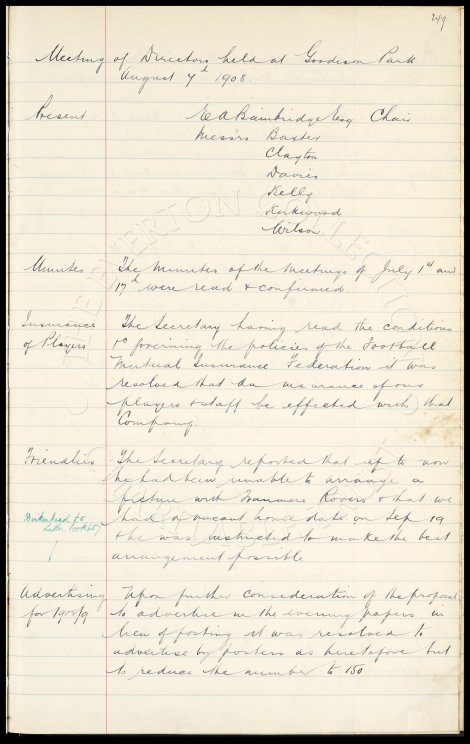 249
Meeting of Directors held at Goodison Park
August 7th 1908.
Present E A Bainbridge Esq Chair
Messrs Baxter
Clayton
Davies
Kelly
Kirkwood
Wilson
Minutes The Minutes of the Meetings of July 1st and
17th were read & confirmed.
Insurance The Secretary having read the conditions
of Players &c governing the policies of the Football
Mutual Insurance Federation it was
resolved that the insurance of our
players & staff be effected with that
Company.
Friendlies The Secretary reported that up to now
he had been unable to arrange a
fixture with Tranmere Rovers & that we
Birkenhead F.C. had a vacant home date on Sep 19
Letter book 65/ & he was instructed to make the best
arrangement possible
Advertising Upon further consideration of the proposal
for 1908/9 to advertise in the evening papers in
lieu of posting it was resolved to
advertise by posters as heretofore but
to reduce the number to 150
THE EVERTON COLLECTION